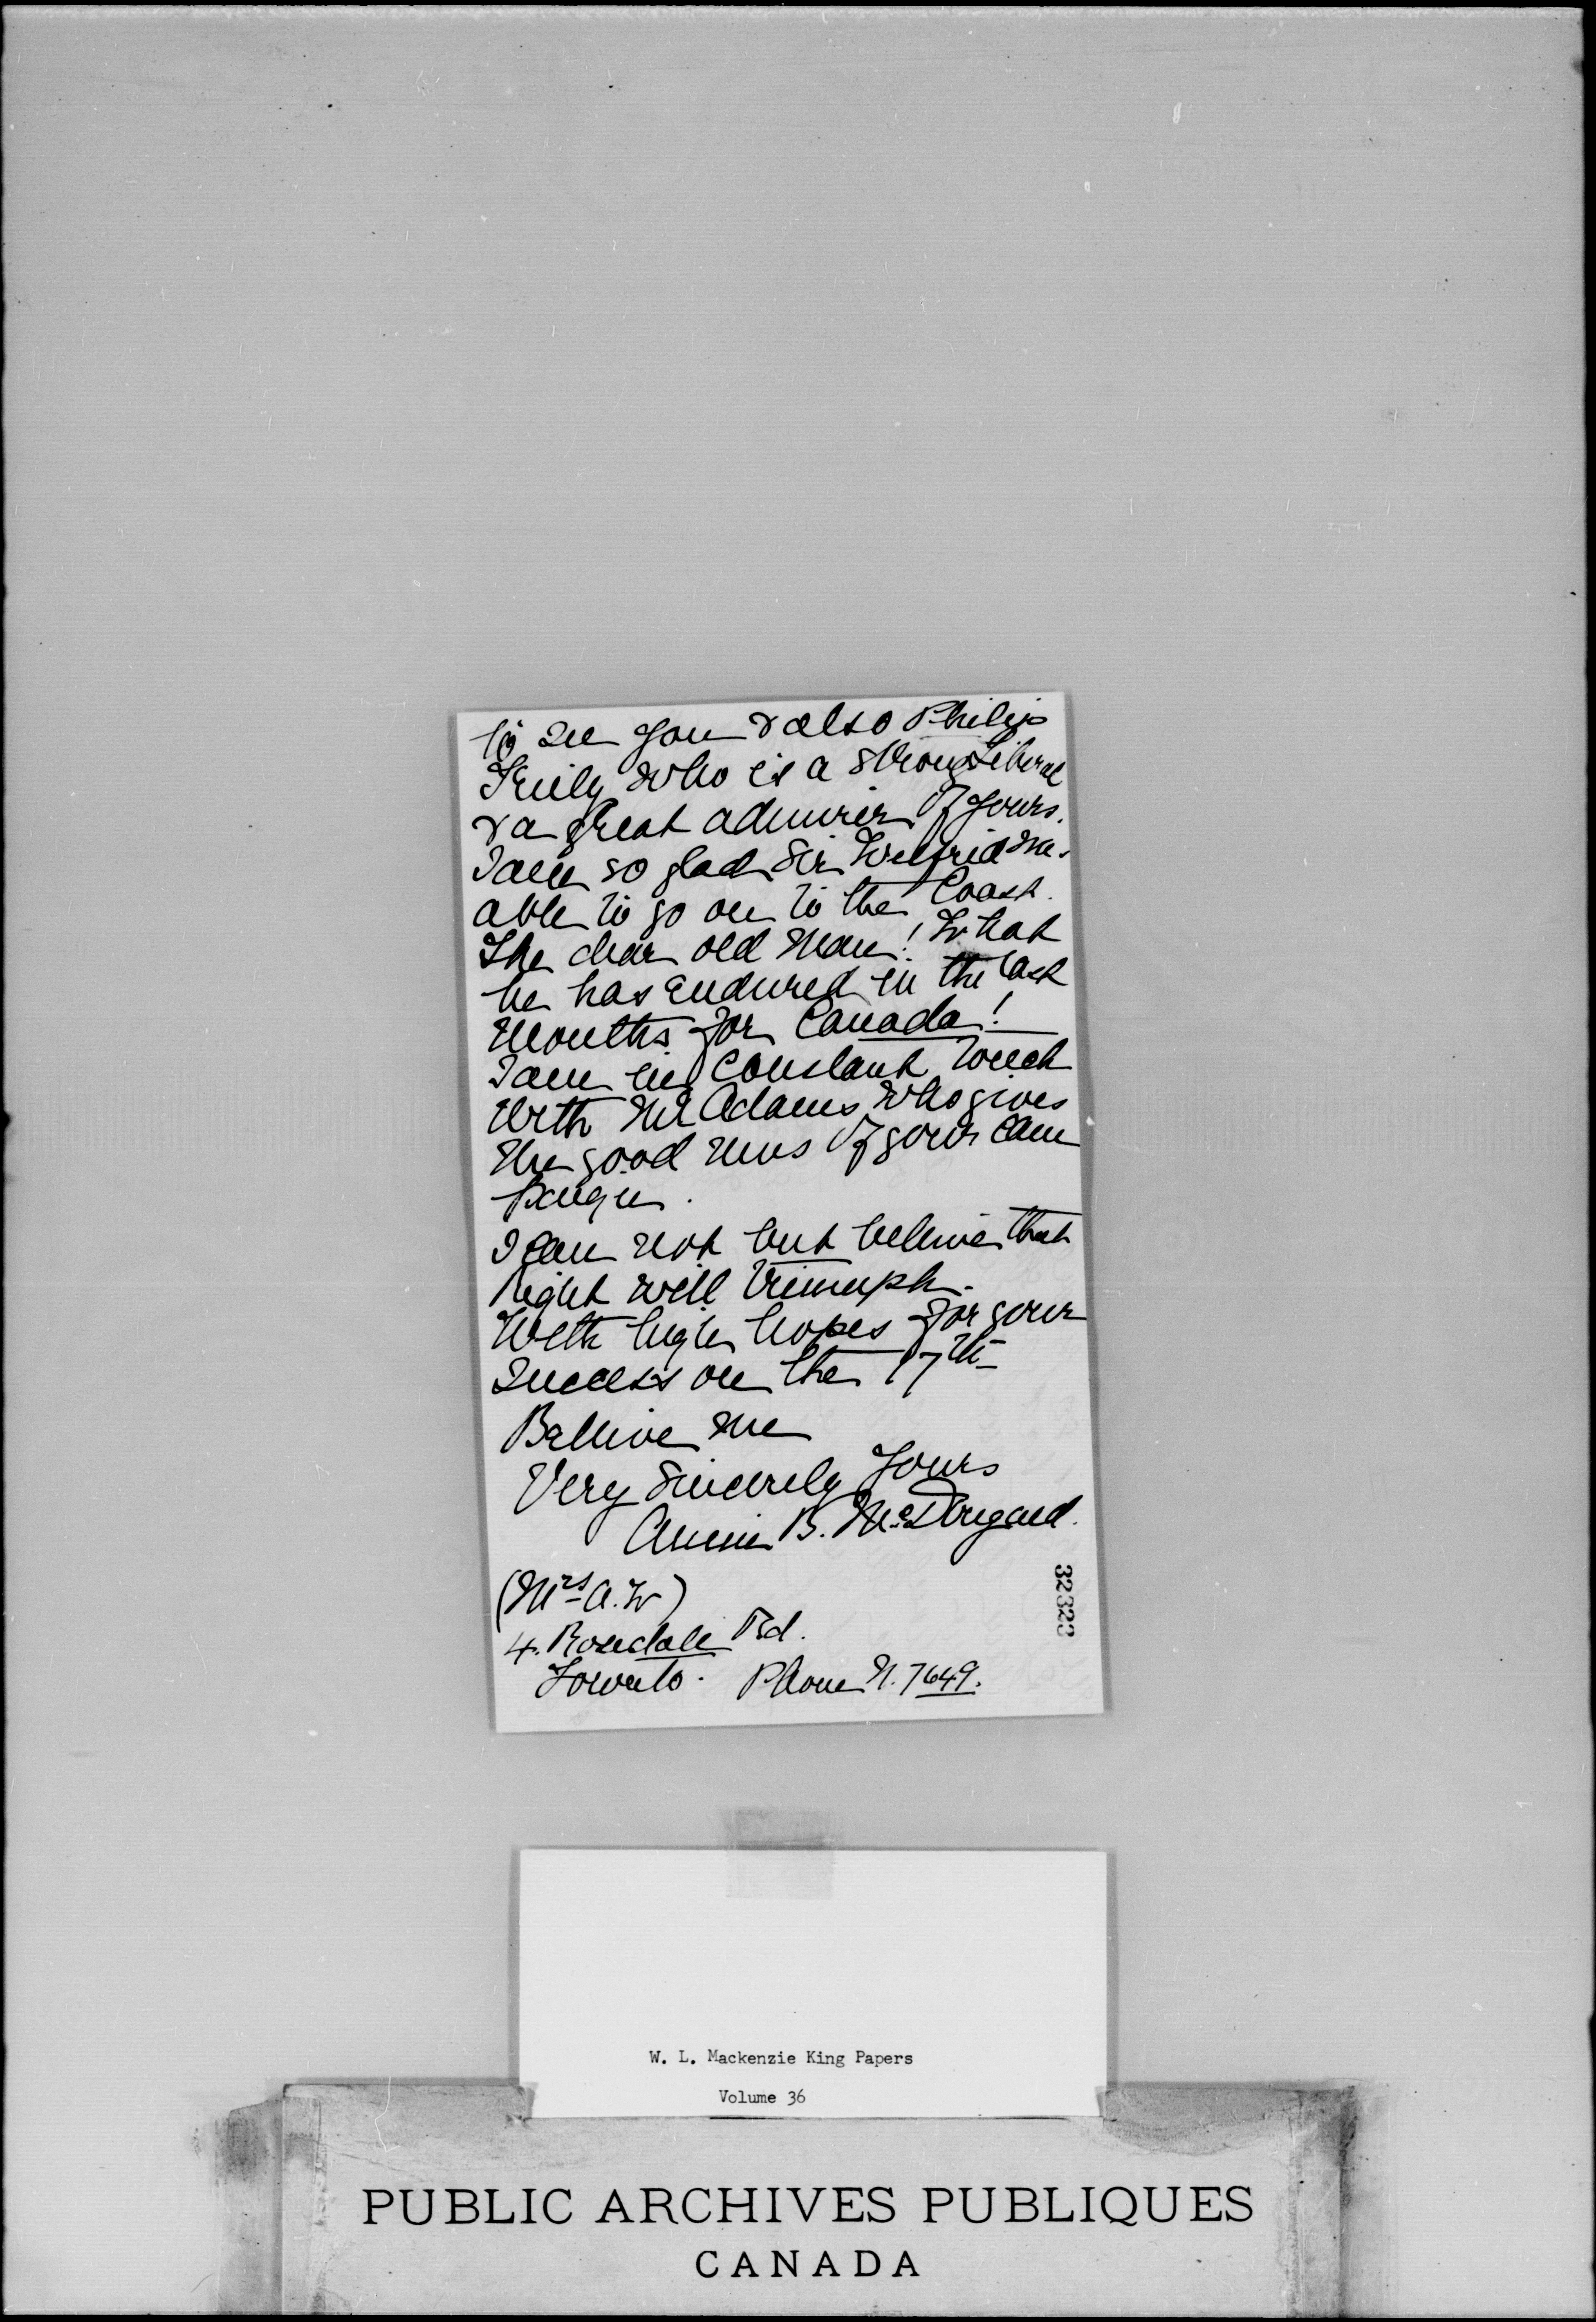 to see you & also Philip
who is a strong Liberal
& a great admirer of yours.
I am so glad Sir Wilfrid was
able to go on to the Coast.
The dear old man! What
he has endured in the last
months for Canada!
I am in constant touch
with Mr Adams who gives
me good news of your cam
paign.
I can not but believe that
right will triumph.
With high hopes for your
success on the 17th
Believe me
Very Sincerely Yours
Annie B. McDougald.
(Mrs A.W)
4. Rosedale Rd.
Toronto. Phone N. 7649.
32323
W. L. Mackenzie King Papers
Volume 36
PUBLIC ARCHIVES PUBLIQUES
CANADA